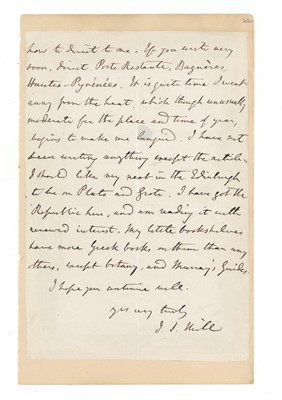 how to direct to me. If you write very
soon, direct Poste Restante, Bagnères,
Hautes-Pyrénées. It is quite time I went
away from the heat, which though unusually
moderate for the place and time of year,
begins to make me languid. I have not
been writing anything except the article
I should like my next in the Edinburgh
to be on Plato and Grote. I have got the
Republic here, and am reading it with
renewed interest. My little bookshelves
have more Greek books on them than any
others, except botany, and Murray's Guides.
I hope you continue well.
yrs very truly
J. S. Mill